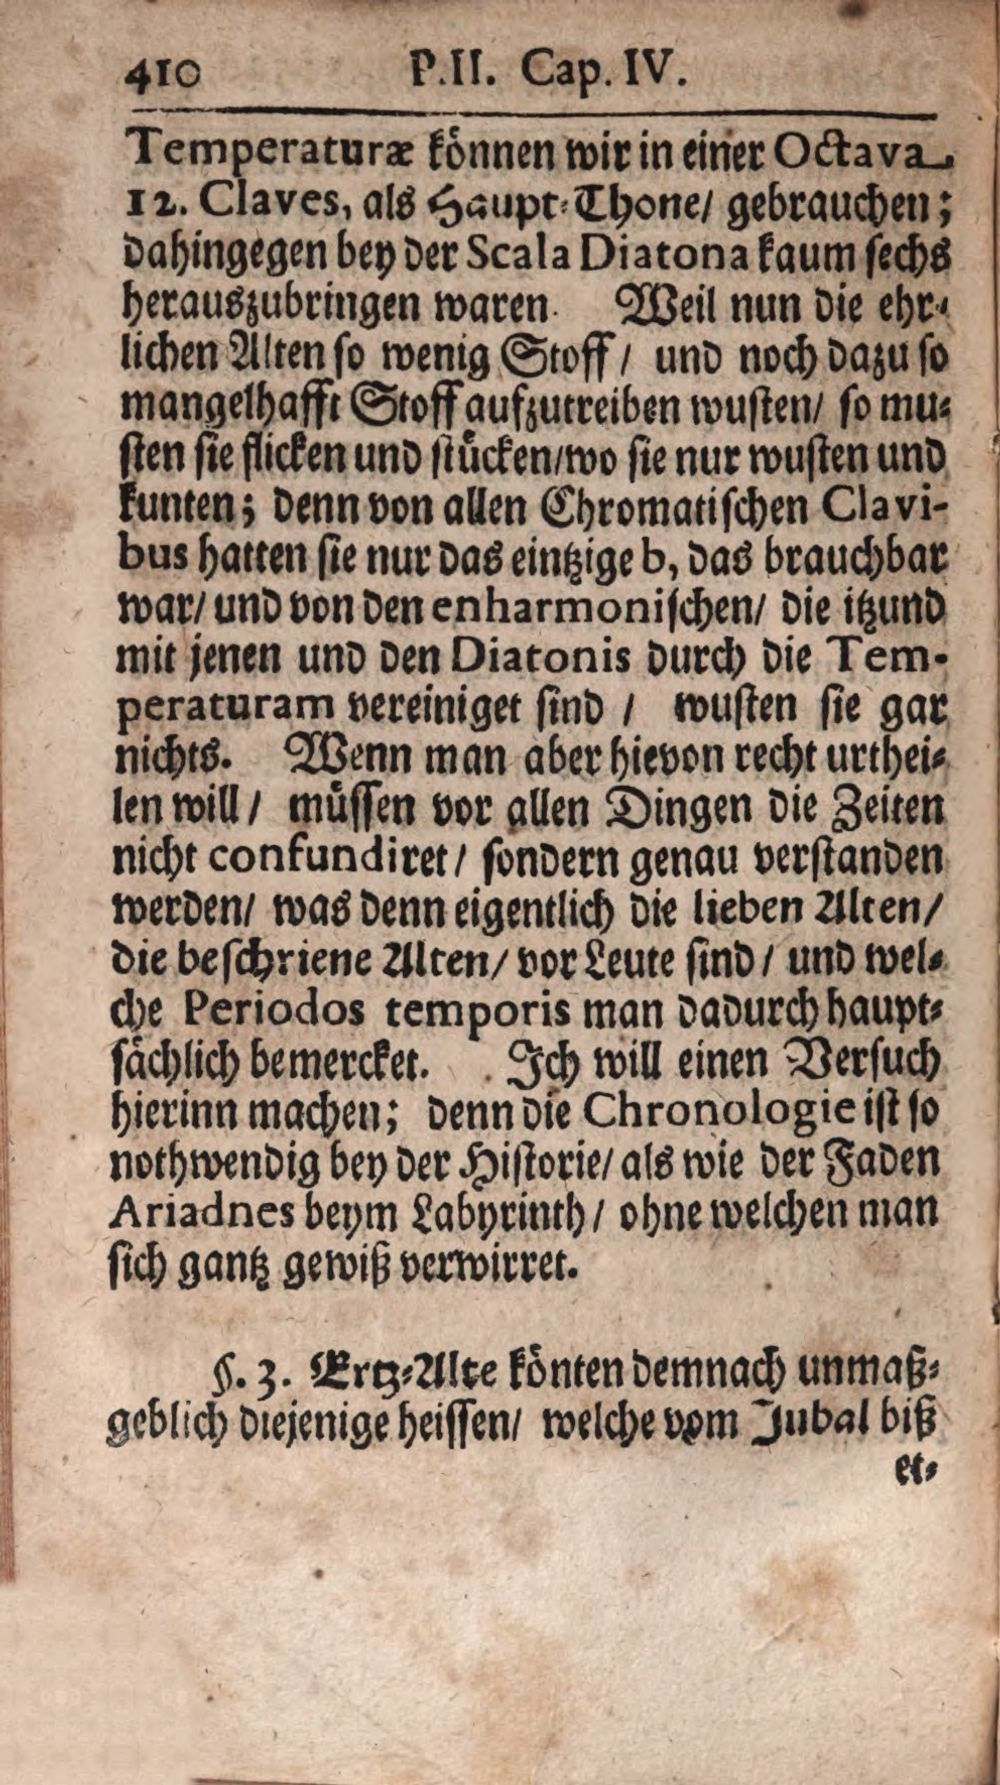 410 P.II. Cap. IV.
Temperaturæ können wir in einer Octava
12. Claves, als Haupt-Thone/ gebrauchen;
dahingegen bey der Scala Diatona kaum sechs
herauszubringen waren. Weil nun die ehr-
lichen Alten so wenig Stoff / und noch dazu so
mangelhafft Stoff aufzutreiben wusten/ so mu-
sten sie flicken und stücken/wo sie nur wusten und
kunten; denn von allen Chromatischen Clavi-
bus hatten sie nur das eintzige b, das brauchbar
war/ und von den enharmonischen/ die itzund
mit jenen und den Diatonis durch die Tem-
peraturam vereiniget sind / wusten sie gar
nichts. Wenn man aber hievon recht urthei-
len will / müssen vor allen Dingen die Zeiten
nicht confundiret / sondern genau verstanden
werden/ was denn eigentlich die lieben Alten/
die beschriene Alten/ vor Leute sind / und wel-
che Periodos temporis man dadurch haupt-
sächlich bemercket. Ich will einen Versuch
hierinn machen; denn die Chronologie ist so
nothwendig bey der Historie/ als wie der Faden
Ariadnes beym Labyrinth / ohne welchen man
sich gantz gewiß verwirret.
§. 3. Ertz-Alte könten demnach unmaß-
geblich diejenige heissen/ welche vom Jubal biß
et-